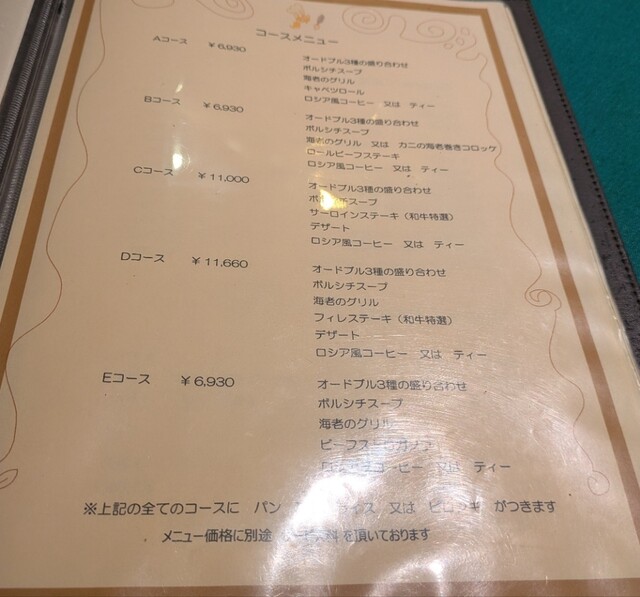 コースメニュー
Aコース ￥6,930
オードブル3種の盛り合わせ
ボルシチスープ
海老のグリル
キャベツロール
ロシア風コーヒー 又は ティー
Bコース ￥6,930
オードブル3種の盛り合わせ
ボルシチスープ
海老のグリル 又は カニの海老巻きコロッケ
ロールビーフステーキ
ロシア風コーヒー 又は ティー
Cコース ￥11,000
オードブル3種の盛り合わせ
スープ
サーロインステーキ（和牛特選）
デザート
ロシア風コーヒー 又は ティー
Dコース ￥11,660
オードブル3種の盛り合わせ
ボルシチスープ
海老のグリル
フィレステーキ（和牛特選）
デザート
ロシア風コーヒー 又は ティー
Eコース ￥6,930
オードブル3種の盛り合わせ
ボルシチスープ
海老のグリル
コーヒー 又は ティー
※上記の全てのコースに パン ライス 又は がつきます
メニュー価格に別途 を頂いております